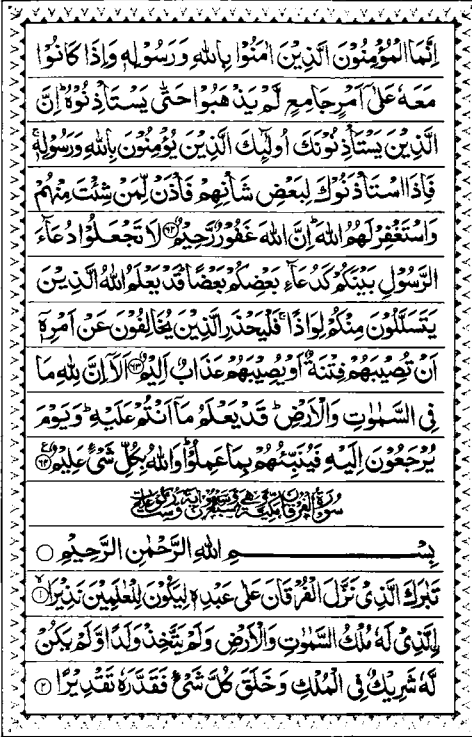 اِنَّمَا الْمُؤْمِنُوْنَ الَّذِيْنَ اٰمَنُوْا بِاللّٰهِ وَرَسُوْلِهٖ وَاِذَا كَانُوْا
مَعَهٗ عَلٰٓى اَمْرٍ جَامِعٍ لَّمْ يَذْهَبُوْا حَتّٰى يَسْتَاْذِنُوْهُ ؕ اِنَّ
الَّذِيْنَ يَسْتَاْذِنُوْنَكَ اُولٰٓئِكَ الَّذِيْنَ يُؤْمِنُوْنَ بِاللّٰهِ وَرَسُوْلِهٖ ۚ
فَاِذَا اسْتَاْذَنُوْكَ لِبَعْضِ شَاْنِهِمْ فَاْذَنْ لِّمَنْ شِئْتَ مِنْهُمْ
وَاسْتَغْفِرْ لَهُمُ اللّٰهَ ؕ اِنَّ اللّٰهَ غَفُوْرٌ رَّحِيْمٌ ۝۶۲ لَا تَجْعَلُوْا دُعَآءَ
الرَّسُوْلِ بَيْنَكُمْ كَدُعَآءِ بَعْضِكُمْ بَعْضًا ؕ قَدْ يَعْلَمُ اللّٰهُ الَّذِيْنَ
يَتَسَلَّلُوْنَ مِنْكُمْ لِوَاذًا ۚ فَلْيَحْذَرِ الَّذِيْنَ يُخَالِفُوْنَ عَنْ اَمْرِهٖٓ
اَنْ تُصِيْبَهُمْ فِتْنَةٌ اَوْ يُصِيْبَهُمْ عَذَابٌ اَلِيْمٌ ۝۶۳ اَلَآ اِنَّ لِلّٰهِ مَا
فِي السَّمٰوٰتِ وَالْاَرْضِ ؕ قَدْ يَعْلَمُ مَآ اَنْتُمْ عَلَيْهِ ؕ وَيَوْمَ
يُرْجَعُوْنَ اِلَيْهِ فَيُنَبِّئُهُمْ بِمَا عَمِلُوْا ؕ وَاللّٰهُ بِكُلِّ شَيْءٍ عَلِيْمٌ ۝۶۴
سُوْرَةُ الْفُرْقَانِ مَكِّيَّةٌ
بِسْمِ اللّٰهِ الرَّحْمٰنِ الرَّحِيْمِ ۝
تَبٰرَكَ الَّذِيْ نَزَّلَ الْفُرْقَانَ عَلٰى عَبْدِهٖ لِيَكُوْنَ لِلْعٰلَمِيْنَ نَذِيْرًا ۝۱
اِۨلَّذِيْ لَهٗ مُلْكُ السَّمٰوٰتِ وَالْاَرْضِ وَلَمْ يَتَّخِذْ وَلَدًا وَّلَمْ يَكُنْ
لَّهٗ شَرِيْكٌ فِي الْمُلْكِ وَخَلَقَ كُلَّ شَيْءٍ فَقَدَّرَهٗ تَقْدِيْرًا ۝۲